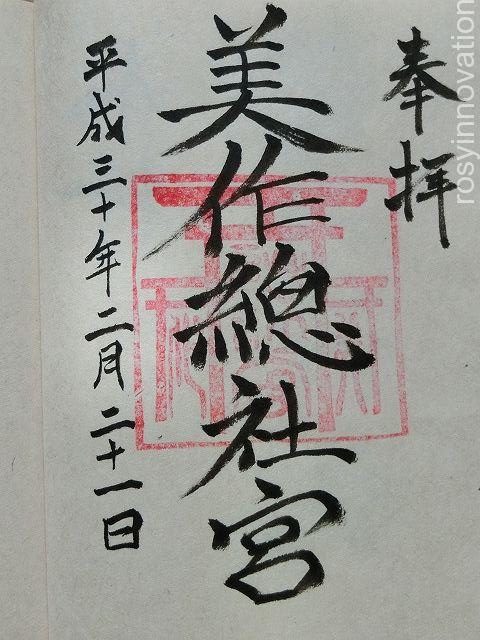 奉拝
美作總社宮
平成三十年二月二十一日
rosyinnovation